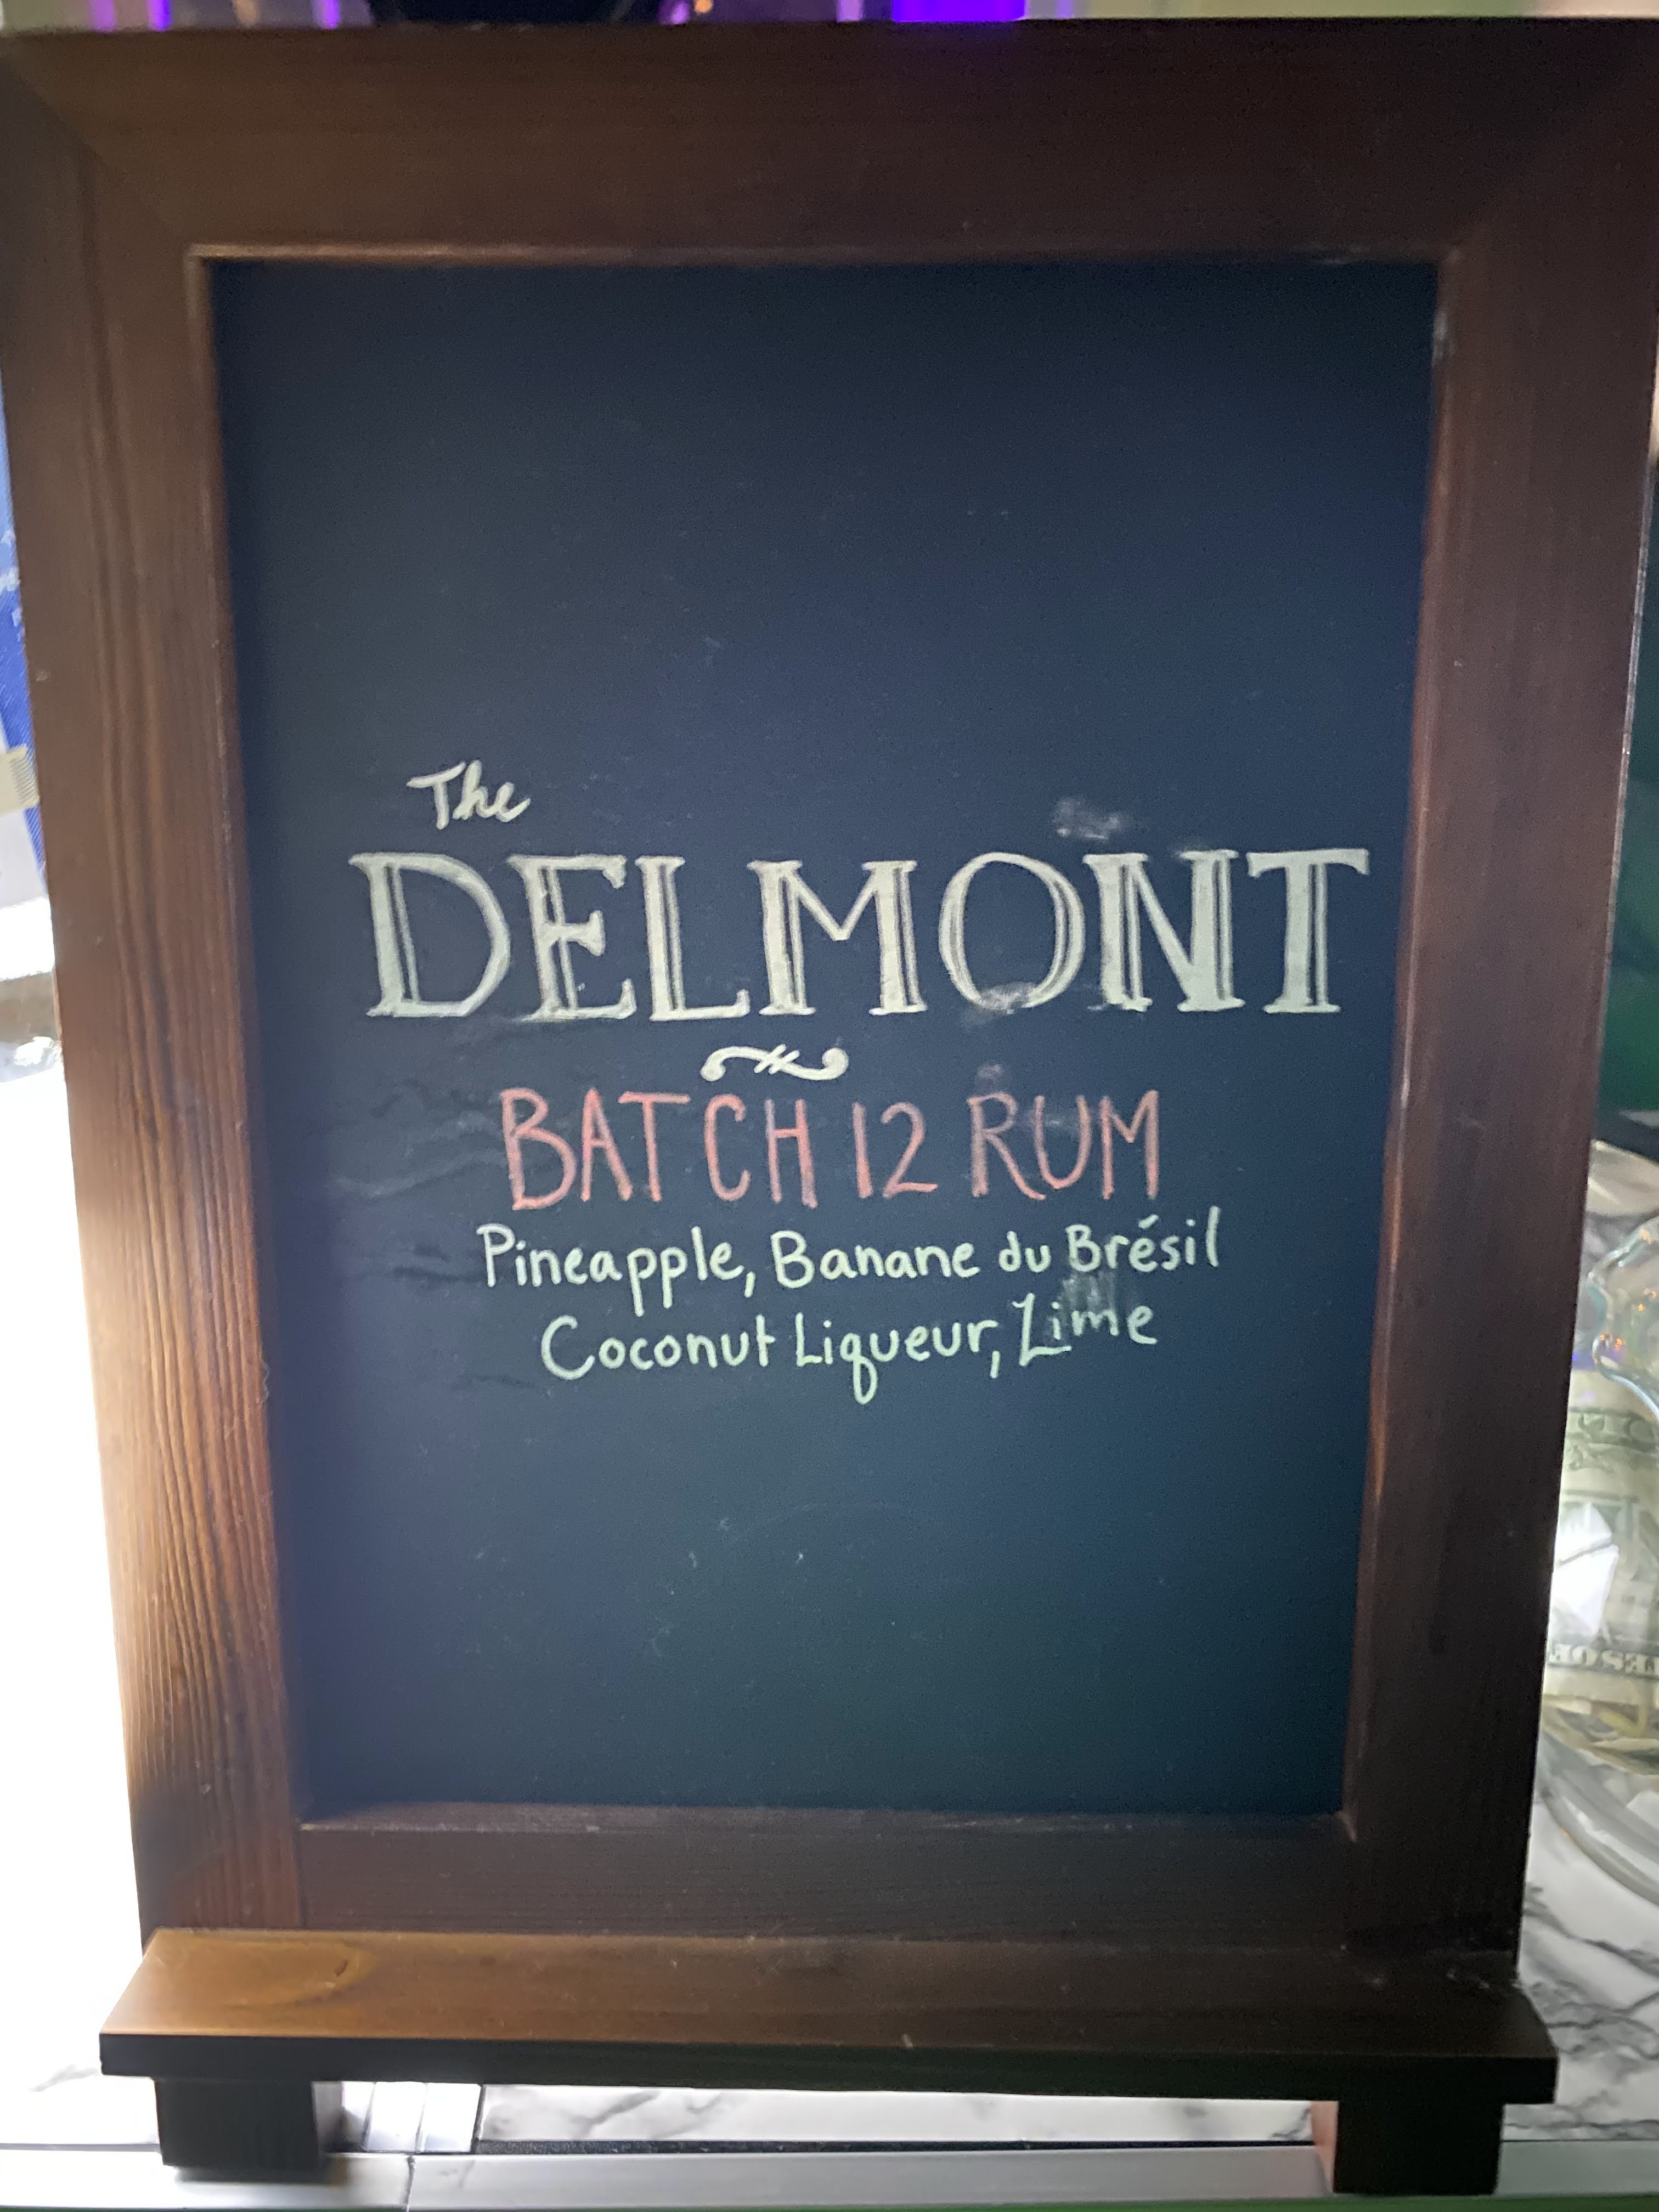 The
DELMONT
BATCH 12 RUM
Pineapple, Banane du Brésil
Coconut Liqueur, Lime